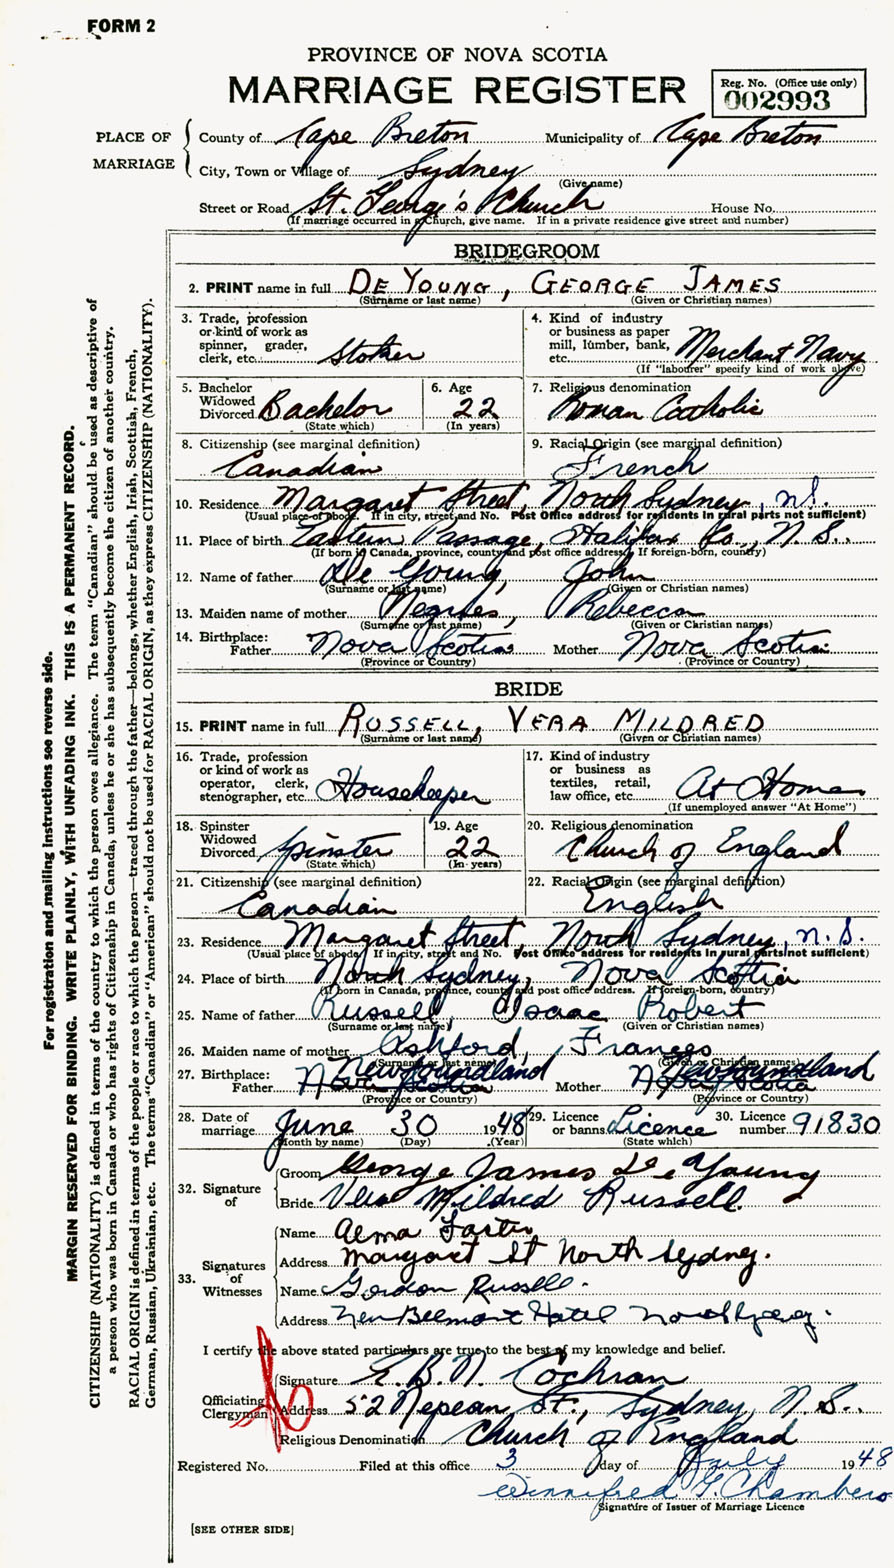 FORM 2
PROVINCE OF NOVA SCOTIA
MARRIAGE REGISTER
Reg. No. (Office use only)
002993
PLACE OF MARRIAGE
County of Cape Breton Municipality of Cape Breton
City, Town or Village of Sydney
(Give name)
Street or Road St. George's Church House No.
(If marriage occurred in a Church, give name. If in a private residence give street and number)
BRIDEGROOM
2. PRINT name in full DE YOUNG, GEORGE JAMES
(Surname or last name) (Given or Christian names)
3. Trade, profession
or kind of work as
spinner, grader,
clerk, etc. Stoker
4. Kind of industry
or business as paper
mill, lumber, bank,
etc. Merchant Navy
(If "labourer" specify kind of work above)
5. Bachelor
Widowed
Divorced Bachelor
(State which)
6. Age
22
(In years)
7. Religious denomination
Roman Catholic
8. Citizenship (see marginal definition)
Canadian
9. Racial Origin (see marginal definition)
French
10. Residence Margaret Street, North Sydney, N.S.
(Usual place of abode. If in city, street and No. Post Office address for residents in rural parts not sufficient)
11. Place of birth Eastern Passage, Halifax Co., N.S.
(If born in Canada, province, county and post office address. If foreign-born, country)
12. Name of father De Young, John
(Surname or last name) (Given or Christian names)
13. Maiden name of mother Rebecca
(Surname or last name) (Given or Christian names)
14. Birthplace:
Father Nova Scotia Mother Nova Scotia
(Province or Country) (Province or Country)
BRIDE
15. PRINT name in full RUSSELL, VERA MILDRED
(Surname or last name) (Given or Christian names)
16. Trade, profession
or kind of work as
operator, clerk,
stenographer, etc. Housekeeper
17. Kind of industry
or business as
textiles, retail,
law office, etc. At Home
(If unemployed answer "At Home")
18. Spinster
Widowed
Divorced Spinster
(State which)
19. Age
22
(In years)
20. Religious denomination
Church of England
21. Citizenship (see marginal definition)
Canadian
22. Racial Origin (see marginal definition)
English
23. Residence Margaret Street, North Sydney, N.S.
(Usual place of abode. If in city, street and No. Post Office address for residents in rural parts not sufficient)
24. Place of birth North Sydney, Nova Scotia
(If born in Canada, province, county and post office address. If foreign-born, country)
25. Name of father Russell, Isaac Robert
(Surname or last name) (Given or Christian names)
26. Maiden name of mother Ashford, Frances
(Surname or last name) (Given or Christian names)
27. Birthplace: Newfoundland Newfoundland
Father Nova Scotia Mother Nova Scotia
(Province or Country) (Province or Country)
28. Date of
marriage June 30 1948
(Month by name) (Day) (Year)
29. Licence
or banns Licence
(State which)
30. Licence
number 91830
32. Signature of
Groom George James De Young
Bride Vera Mildred Russell
33. Signatures of Witnesses
Name Alma
Address Margaret St North Sydney.
Name Gordon Russell.
Address New Belmont Hotel North Sydney.
I certify the above stated particulars are true to the best of my knowledge and belief.
Officiating Clergyman
Signature E. B. N. Cochran
Address 52 Nepean St., Sydney, N.S.
Religious Denomination Church of England
Registered No. Filed at this office 3 day of July 1948
Winnifred G. Chambers
Signature of Issuer of Marriage Licence
[SEE OTHER SIDE]
For registration and mailing instructions see reverse side.
MARGIN RESERVED FOR BINDING. WRITE PLAINLY, WITH UNFADING INK. THIS IS A PERMANENT RECORD.
CITIZENSHIP (NATIONALITY) is defined in terms of the country to which the person owes allegiance. The term "Canadian" should be used as descriptive of
a person who was born in Canada or who has rights of Citizenship in Canada, unless he or she has subsequently become the citizen of another country.
RACIAL ORIGIN is defined in terms of the people or race to which the person—traced through the father—belongs, whether English, Irish, Scottish, French,
German, Russian, Ukrainian, etc. The terms "Canadian" or "American" should not be used for RACIAL ORIGIN, as they express CITIZENSHIP (NATIONALITY).